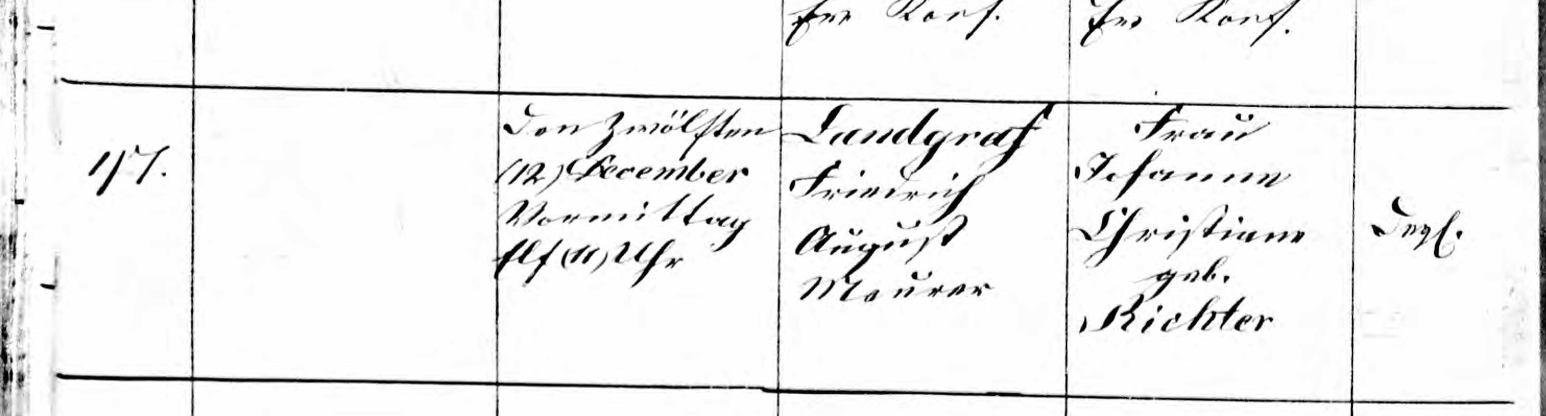 Ev. Konf.
Ev. Konf.
117.
Den zwölften
(12) December
Vormittag
elf (11) Uhr
Landgraf
Friedrich
August
Maurer
Frau
Johanne
Christiane
geb.
Richter
Desgl.